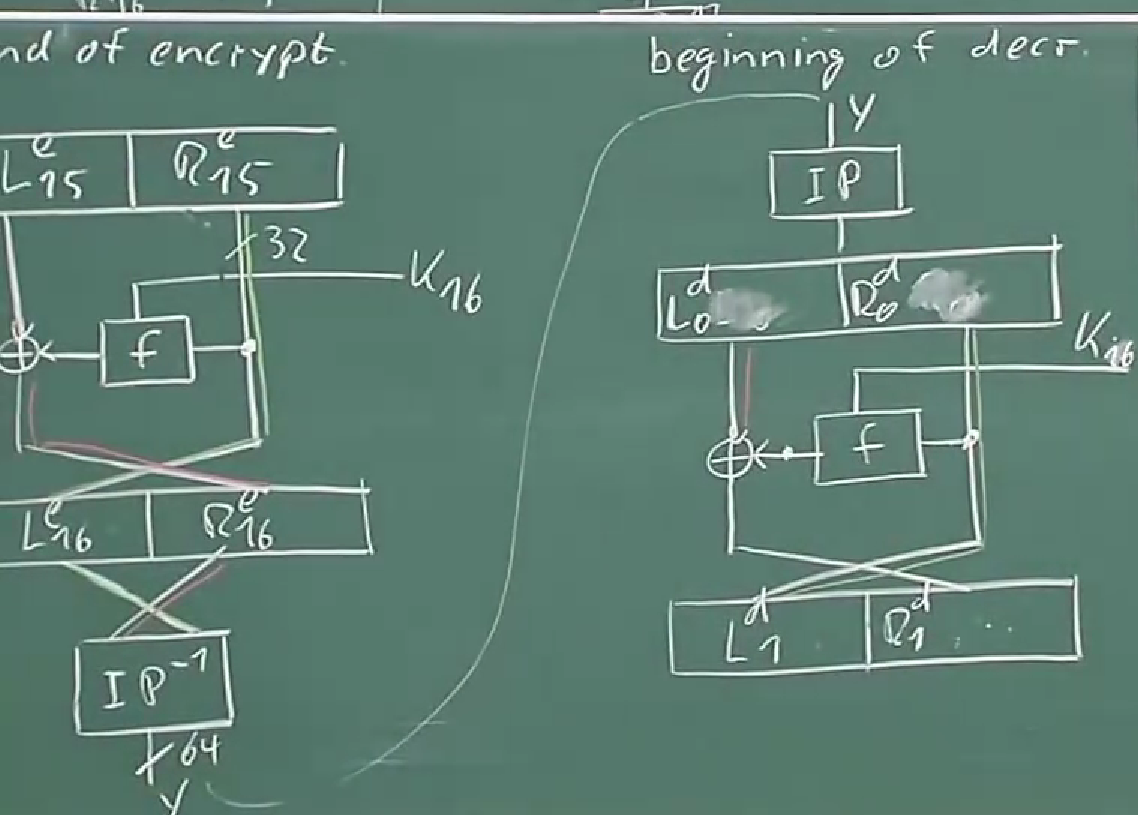 nd of encrypt.
L15^e R15^e
32
K16
f
L16^e R16^e
IP^-1
64
y
beginning of decr.
y
IP
L0^d R0^d
K16
f
L1^d R1^d ...